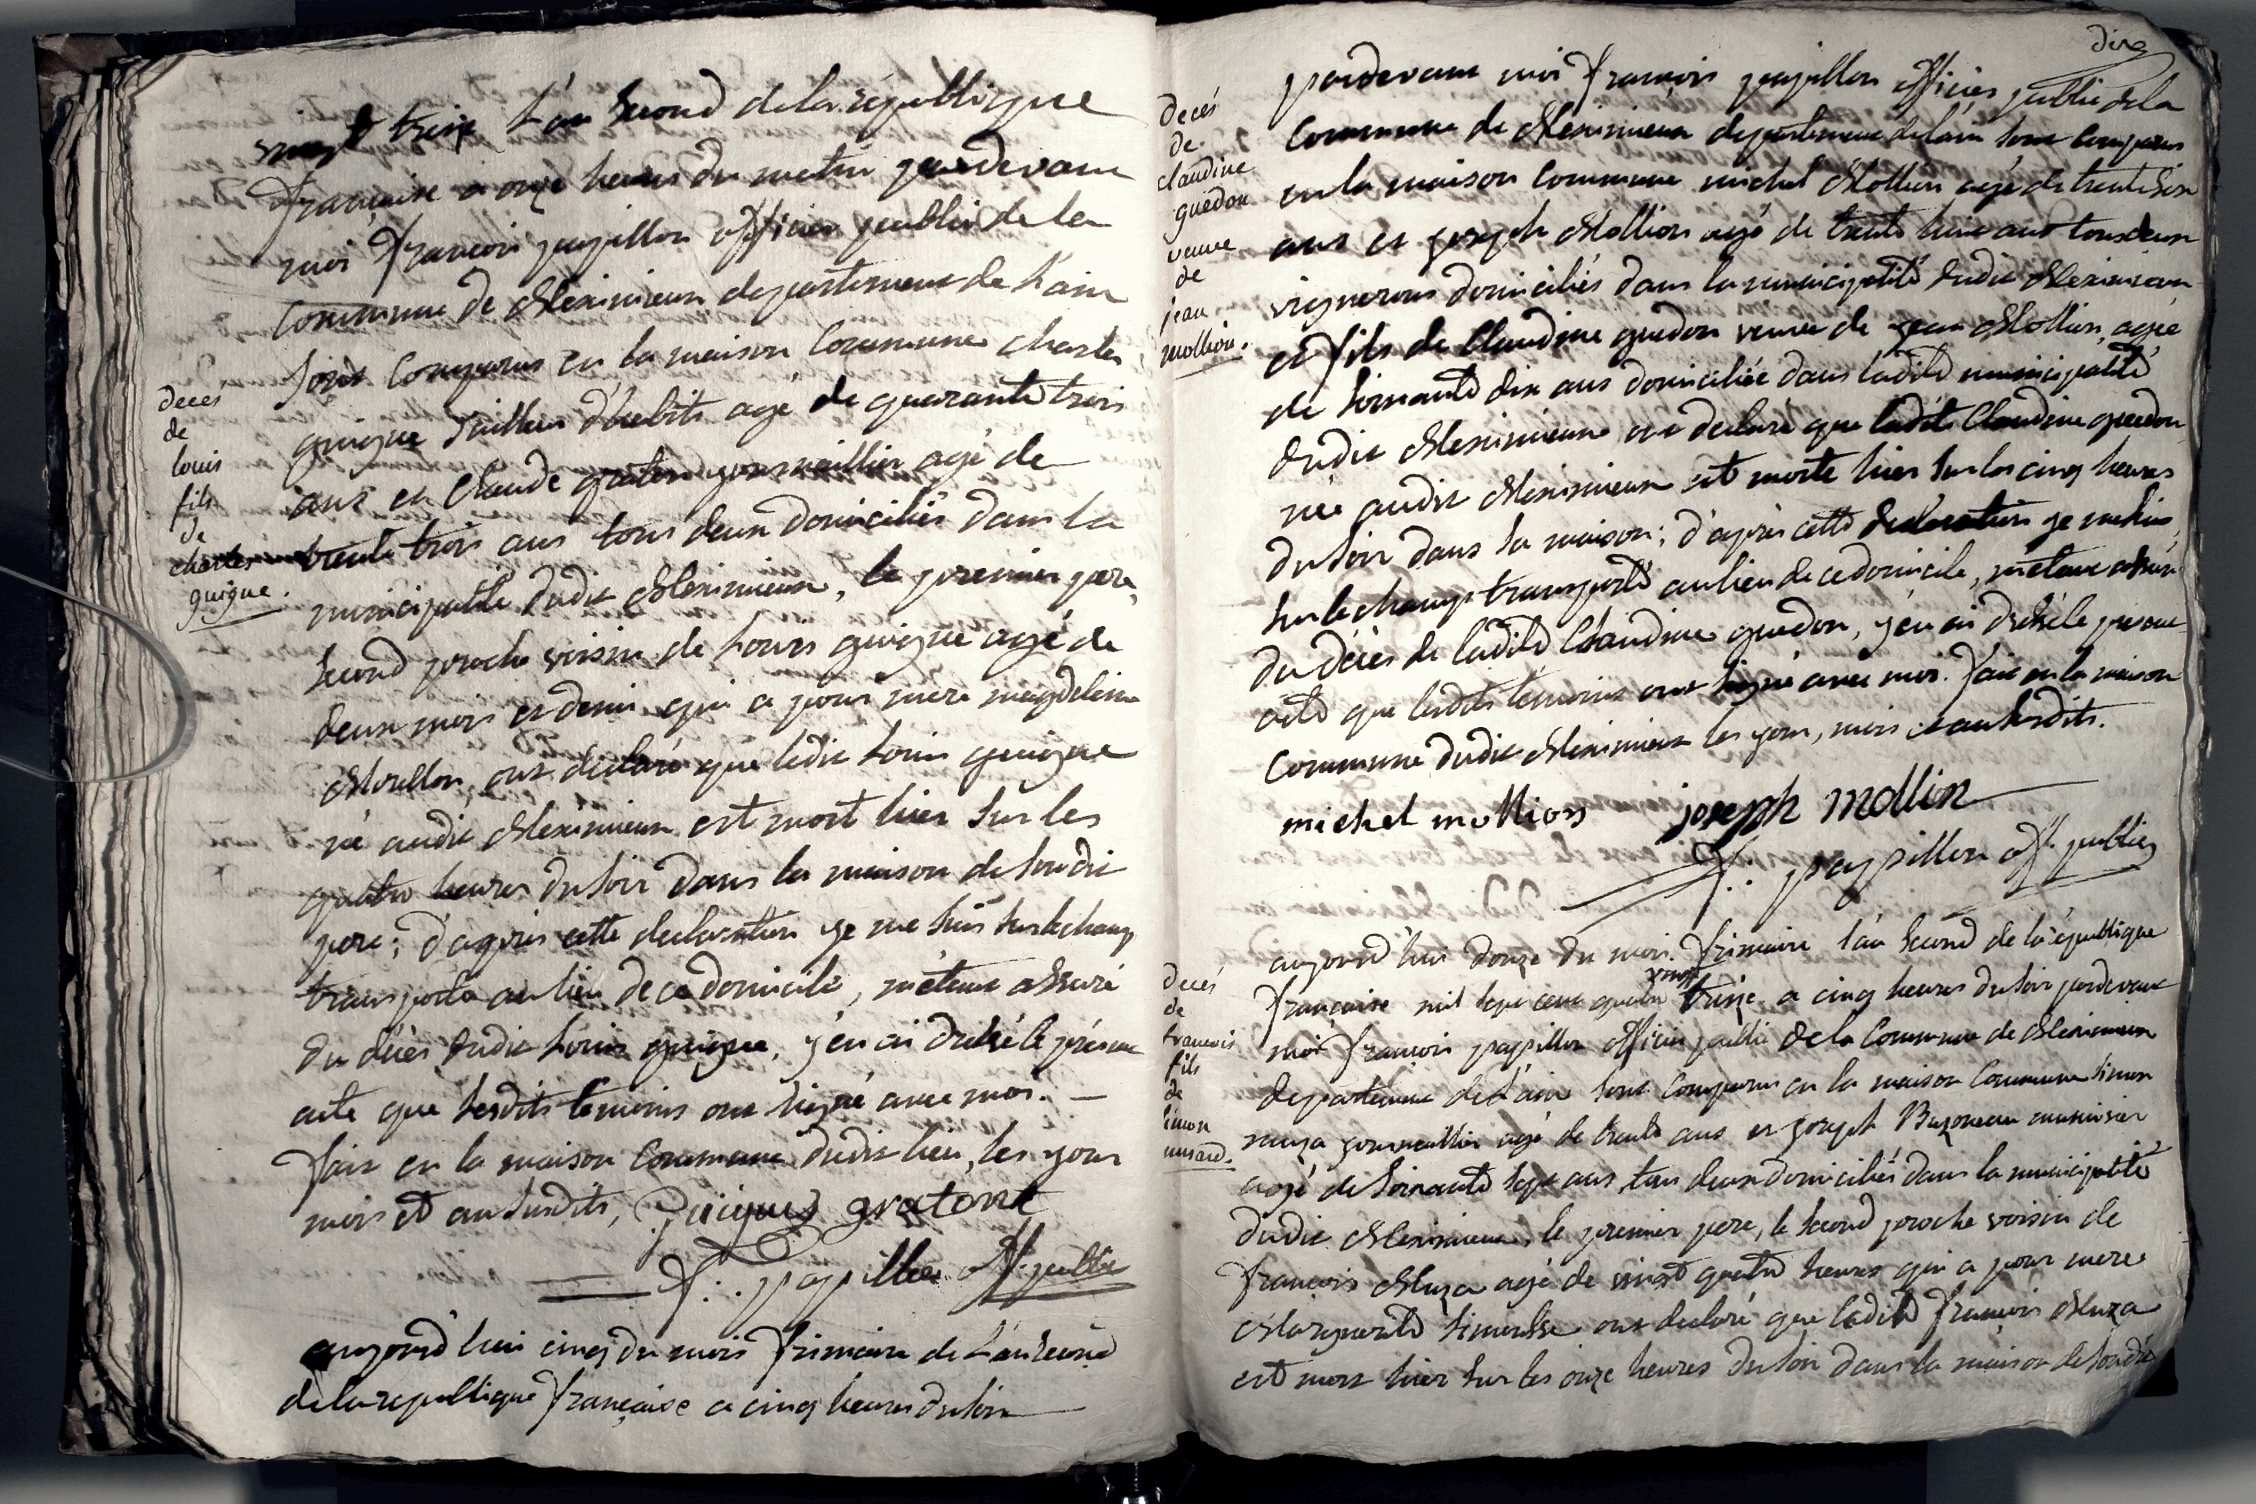 vingt treize l'an second de la république
française a onze heures du matin pardevant
moi françois papillon officier public de la
commune de Meximieux departement de l'ain
sont comparus en la maison commune charles
guigue tailleur d'habits agé de quarante trois
ans et claude graton journaillier agé de
trente trois ans tous deux domiciliés dans la
municipalité dudit Meximieux, le premier pere,
second proche voisin de louis guigue agé de
deux mois et demi qui a pour mere magdeleine
Moullon, ont declaré que ledit louis guigue
né audit Meximieux est mort hier sur les
quatre heures du soir dans la maison de sondit
pere; d'après cette declaration je me suis sur le champ
transporté au lieu de ce domicile, m'étant assuré
du décès dudit louis guigue, j'en ai dressé le présent
acte que lesdits temoins ont signé avec moi. —
fait en la maison commune dudit lieu, les jour
mois et an susdits, guigue gratont
f. papillon off. public
aujourd'hui cinq du mois frimaire de l'an second
de la republique française a cinq heures du soir
deces
de
louis
fils
de
charles
guigue.
dix
pardevant moi françois papillon officier public de la
commune de Meximieux departement de l'ain sont comparus
en la maison commune michel Mollion agé de trente six
ans et joseph Mollion agé de trente huit ans tous deux
vignerons domiciliés dans la municipalité dudit Meximieux
et fils de Claudine guedon veuve de jean Mollion, agée
de soixante dix ans domiciliée dans ladite municipalité
dudit Meximieux ont declaré que ladite Claudine guedon
née audit Meximieux est morte hier sur les cinq heures
du soir dans sa maison; d'après cette declaration je me suis
sur le champ transporté au lieu de ce domicile, m'étant assuré
du décès de ladite Claudine guedon, j'en ai dressé le présent
acte que lesdits temoins ont signé avec moi. fait en la maison
commune dudit Meximieux les jour, mois et an susdits.
michel mollion joseph mollin
f. papillon off. public
decés
de
claudine
guedon
veuve
de
jean
mollion.
aujourd'hui douze du mois frimaire l'an second de la république
française mil sept cent quatre vingt treize a cinq heures du soir pardevant
moi françois papillon officier public de la commune de Meximieux
departement de l'ain sont comparus en la maison commune simon
muza journaillier agé de trente ans et joseph Buzoneau menuisier
agé de soixante sept ans, tous deux domiciliés dans la municipalité
dudit Meximieux, le premier pere, le second proche voisin de
françois Muza agé de vingt quatre heures qui a pour mere
Marguerite simousse ont declaré que ledit françois Muza
est mort hier sur les onze heures du soir dans la maison de sondit
decés
de
francois
fils
de
simon